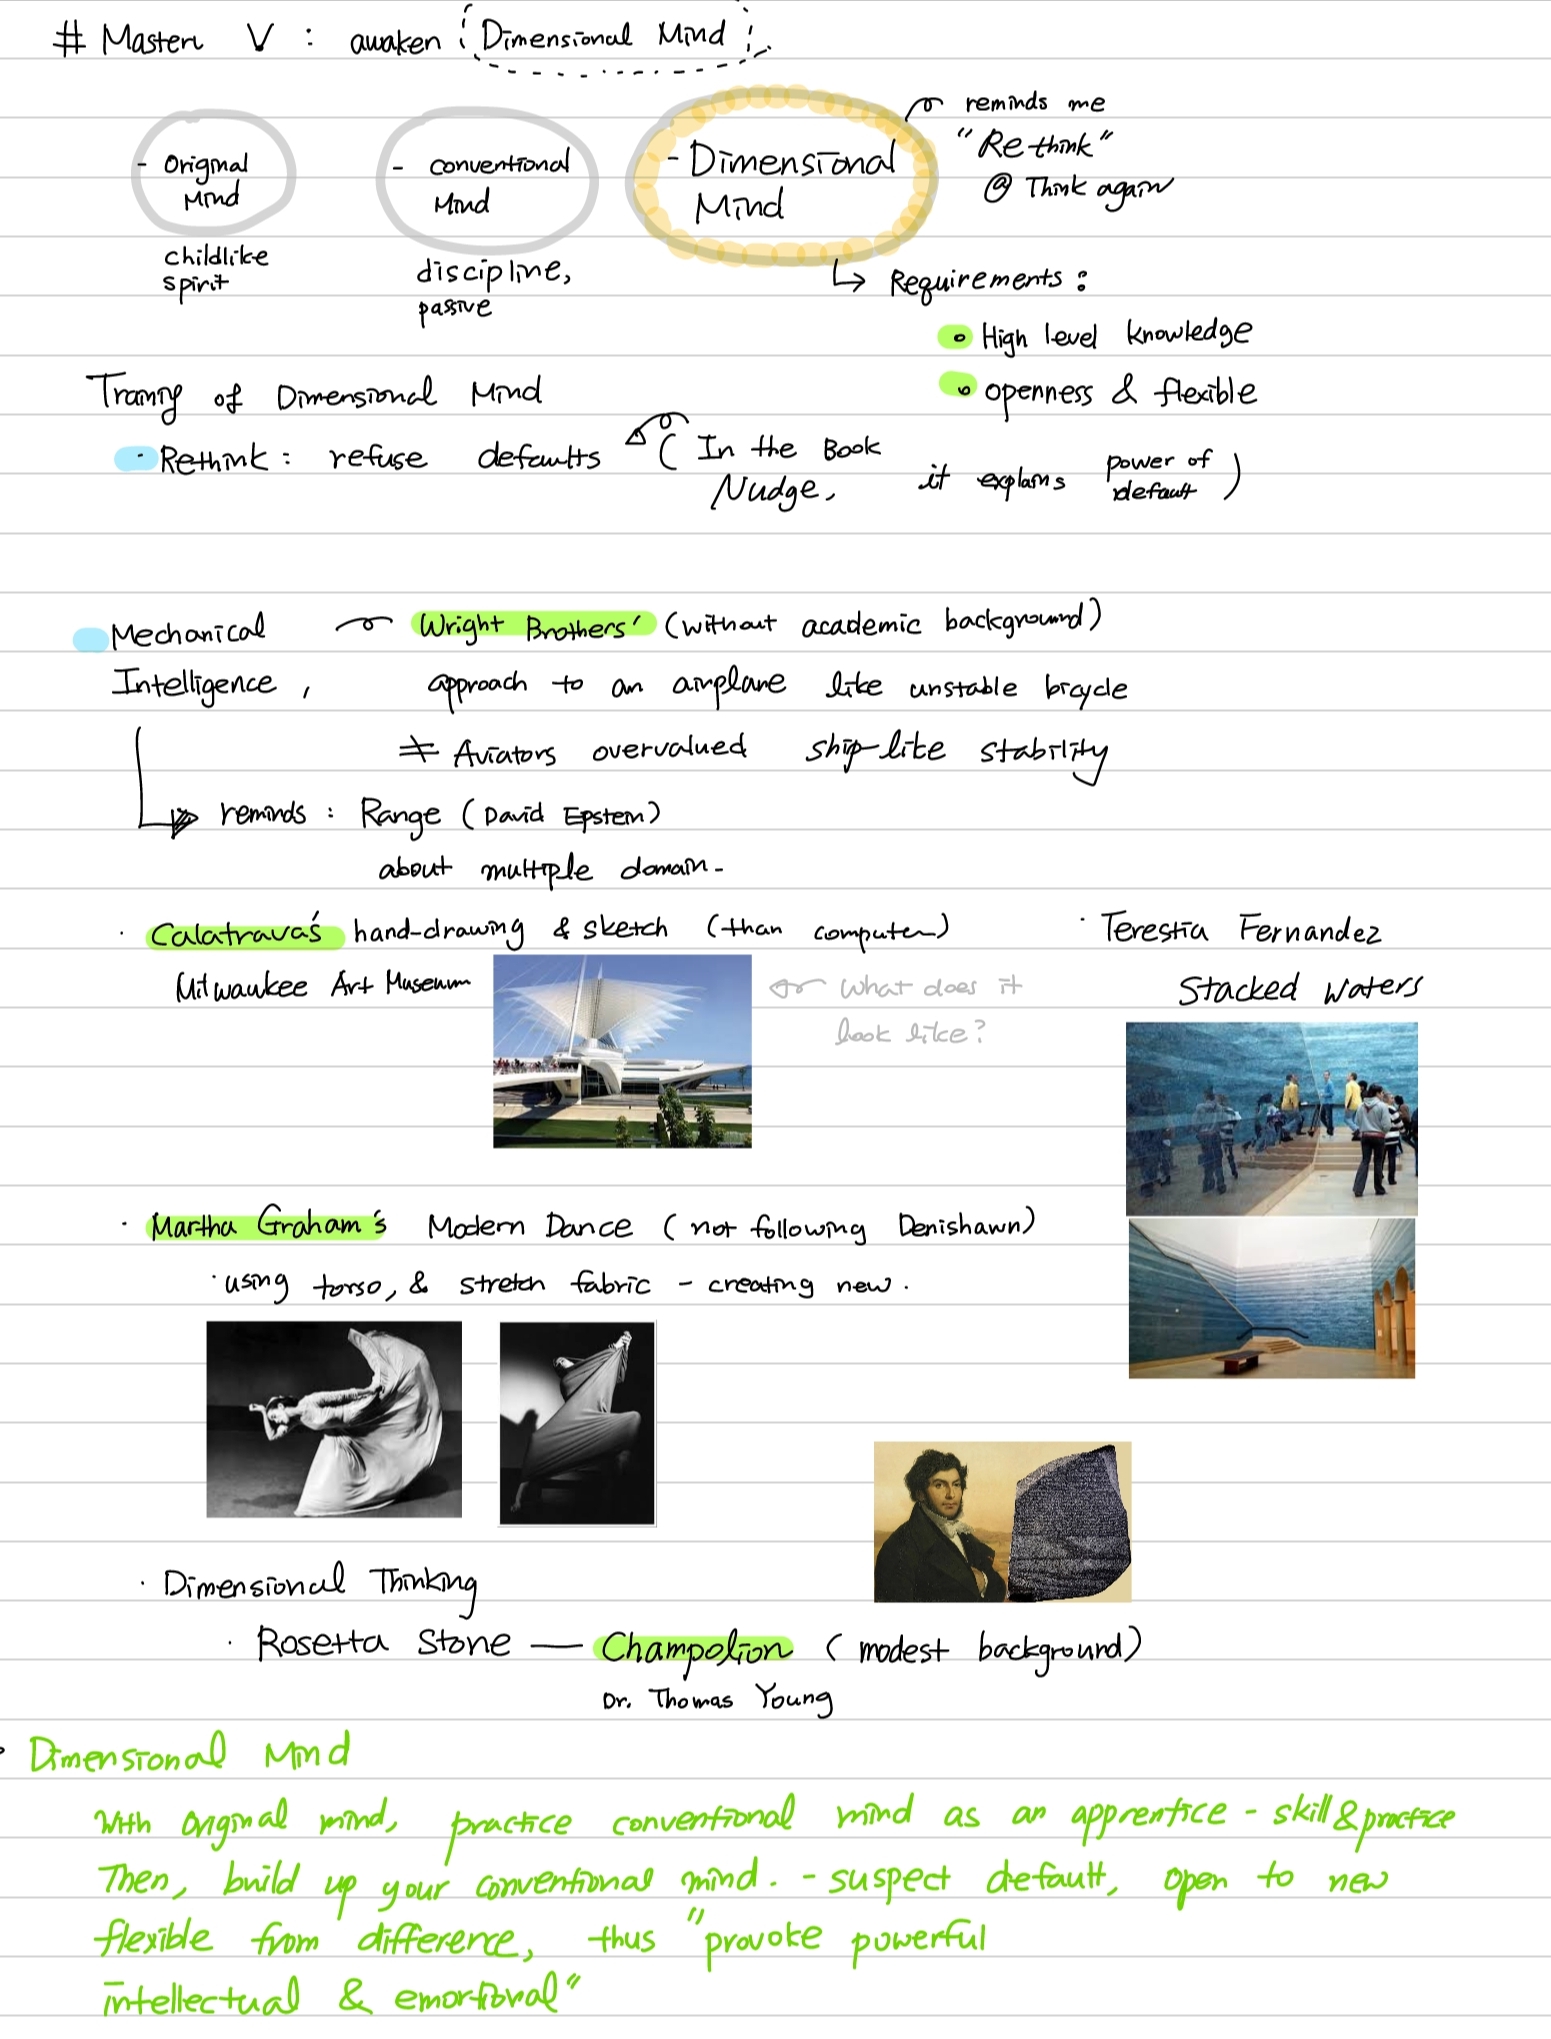 # Master V : awaken Dimensional Mind
- Original Mind
childlike spirit
- conventional Mind
discipline, passive
- Dimensional Mind
reminds me
"Re-think"
@ Think again
Requirements :
• High level knowledge
• openness & flexible
Training of Dimensional Mind
· Rethink : refuse defaults ( In the Book Nudge, it explains power of default )
Mechanical Intelligence,
Wright Brothers' (without academic background)
approach to an airplane like unstable bicycle
≠ Aviators overvalued ship-like stability
reminds : Range ( David Epstein )
about multiple domain.
· Calatrava's hand-drawing & sketch (than computer)
Milwaukee Art Museum
What does it
look like?
· Terestia Fernandez
Stacked Waters
· Martha Graham's Modern Dance ( not following Denishawn)
· using torso, & stretch fabric - creating new.
· Dimensional Thinking
· Rosetta Stone — Champolion ( modest background)
Dr. Thomas Young
· Dimensional Mind
With original mind, practice conventional mind as an apprentice - skill & practice
Then, build up your conventional mind. - suspect default, open to new
flexible from difference, thus "provoke powerful
intellectual & emortional"